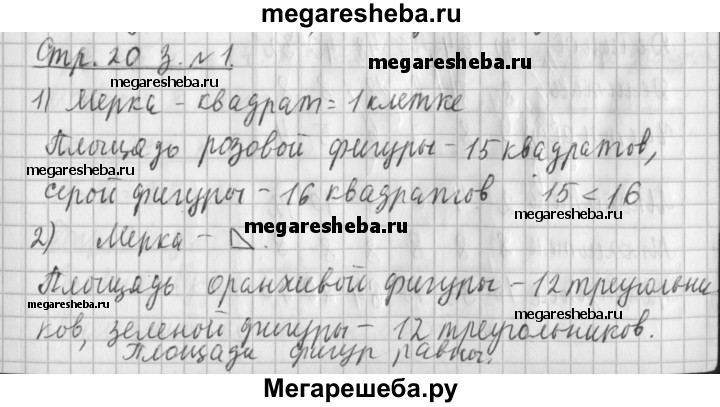 megaresheba.ru
Стр. 20 З. №1.
megaresheba.ru
megaresheba.ru
1) Мерка - квадрат = 1 клетке
Площадь розовой фигуры - 15 квадратов,
megaresheba.ru
серой фигуры - 16 квадратов 15 < 16
megaresheba.ru
megaresheba.ru
2) Мерка -
Площадь оранжевой фигуры - 12 треугольни
megaresheba.ru
megaresheba.ru
ков, зеленой фигуры - 12 треугольников.
Площади фигур равны.
Мегарешеба.ру